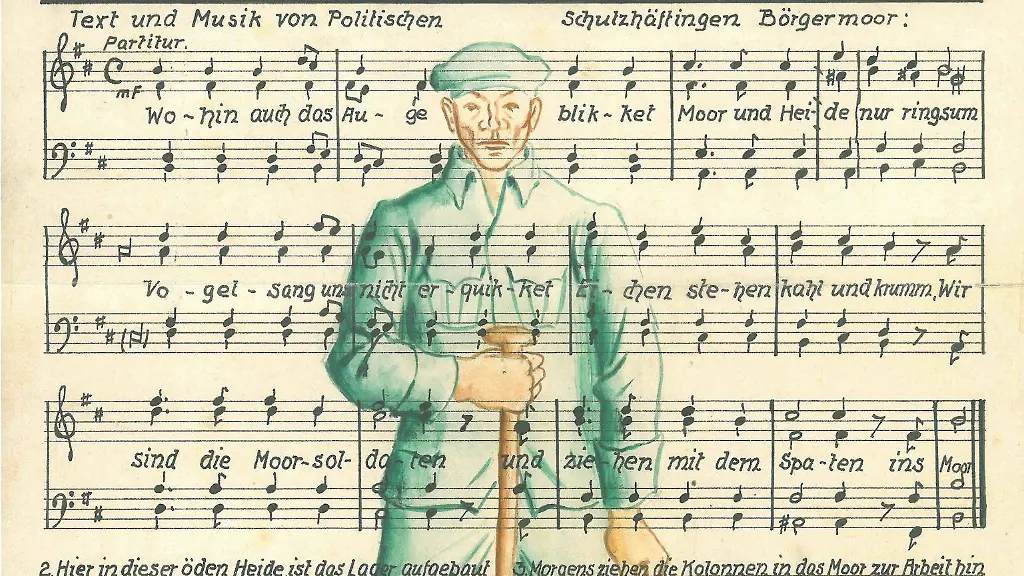 Text und Musik von Politischen Schutzhäftlingen Börgermoor:
Partitur.
mf
Wo-hin auch das Au-ge blik-ket Moor und Hei-de nur ringsum
Vo-gel-sang uns nicht er-quik-ket Ei-chen ste-hen kahl und krumm, Wir
sind die Moor-sol-da-ten und zie-hen mit dem Spa-ten ins Moor
2. Hier in dieser öden Heide ist das Lager aufgebaut 3. Morgens ziehen die Kolonnen in das Moor zur Arbeit hin